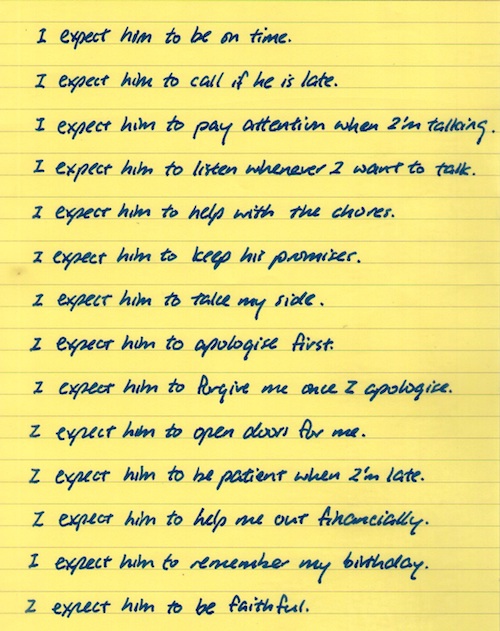 I expect him to be on time.
I expect him to call if he is late.
I expect him to pay attention when I'm talking.
I expect him to listen whenever I want to talk.
I expect him to help with the chores.
I expect him to keep his promises.
I expect him to take my side.
I expect him to apologise first.
I expect him to forgive me once I apologise.
I expect him to open doors for me.
I expect him to be patient when I'm late.
I expect him to help me out financially.
I expect him to remember my birthday.
I expect him to be faithful.